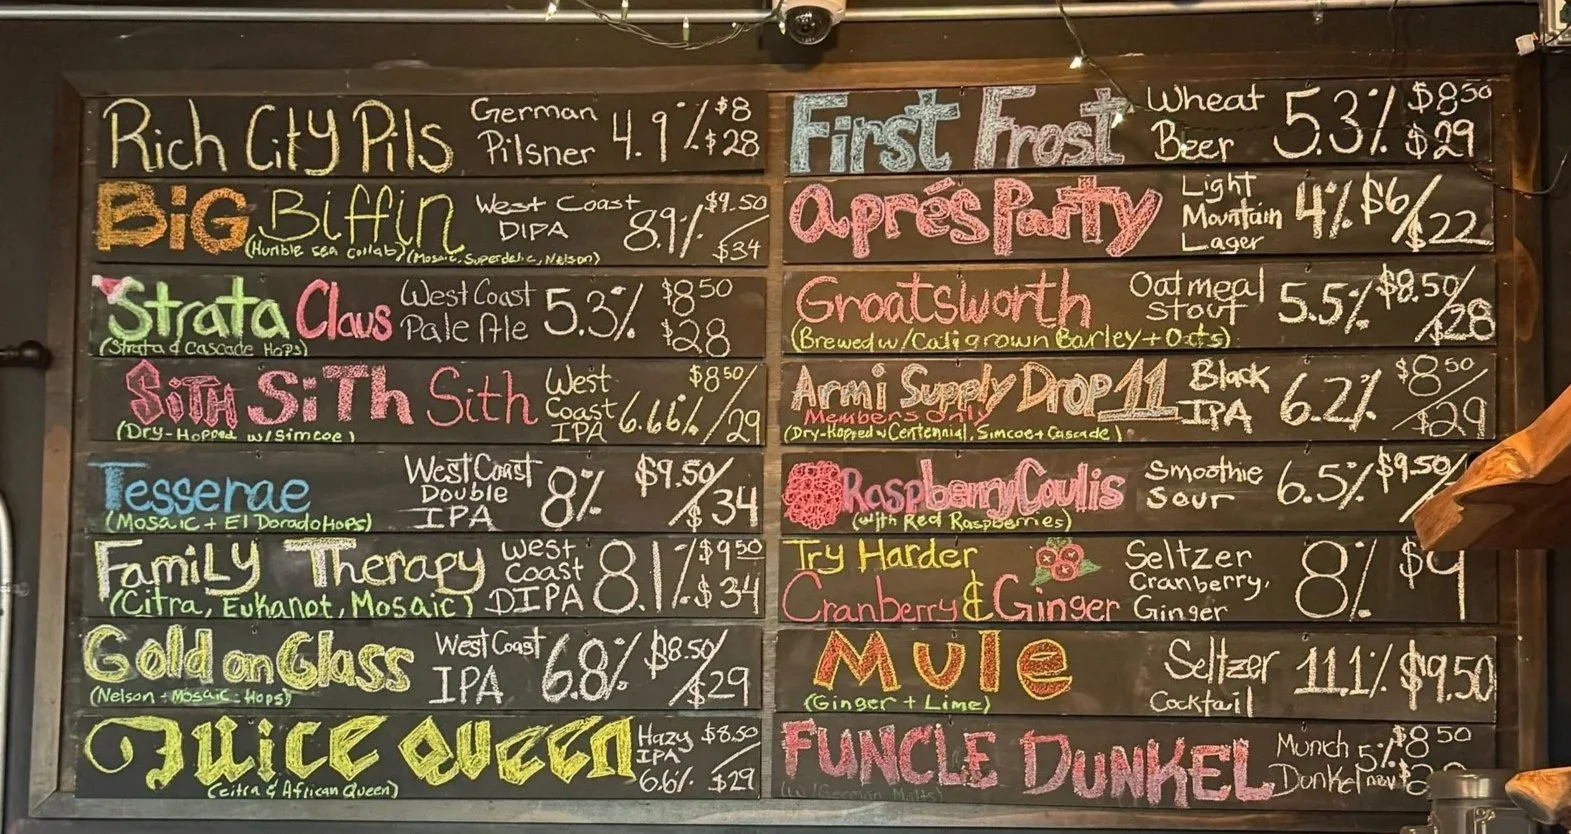 Rich City Pils German Pilsner 4.9% $8 $28
BiG Biffin West Coast DIPA 8.9% $9.50 / $34
(Humble sea collab) (Mosaic, Superdelic, Nelson)
Strata Claus West Coast Pale Ale 5.3% $8.50 $28
(Strata & Cascade Hops)
SiTH SiTh Sith West Coast IPA 6.66% $8.50 / 29
(Dry-Hopped w/Simcoe)
Tesserae West Coast Double IPA 8% $9.50 / $34
(Mosaic + El Dorado Hops)
FamiLy Therapy West Coast DIPA 8.1% $9.50 / $34
(Citra, Eukanot, Mosaic)
Gold on Glass West Coast IPA 6.8% $8.50 / $29
(Nelson + Mosaic Hops)
Juice Queen Hazy IPA 6.6% $8.50 / $29
(citra & African Queen)
First Frost Wheat Beer 5.3% $8.50 $29
aprés Party Light Mountain Lager 4% $6 / $22
Groatsworth Oatmeal Stout 5.5% $8.50 / $28
(Brewed w/ Cali grown Barley + Oats)
Armi Supply Drop 11 Black IPA 6.2% $8.50 / $29
Members Only
(Dry-Hopped w Centennial, Simcoe + Cascade)
Raspberry Coulis Smoothie Sour 6.5% $9.50/
(with Red Raspberries)
Try Harder Cranberry & Ginger Seltzer Cranberry, Ginger 8% $9
Mule Seltzer Cocktail 11.1% $9.50
(Ginger + Lime)
FUNCLE DUNKEL Munch Dunkel 5% ABV $8.50
(w/ German Malts)